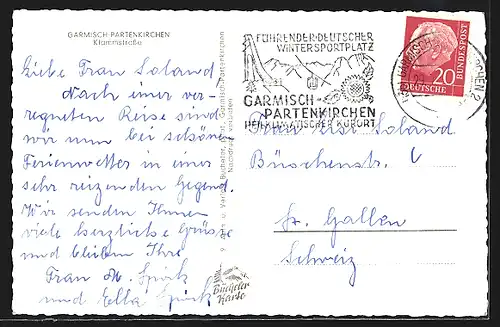 GARMISCH-PARTENKIRCHEN
Klammstraße
Liebe Frau Soland
Nach einer ver-
regneten Reise sind
wir nun bei schönem
Ferienwetter in einer
sehr reizenden Gegend.
Wir senden Ihnen
viele herzliche Grüsse
und bleiben Ihre
Frau M. Spirk
und Ella Spirk
Nachdruck verboten
Bücheler
Karte
FÜHRENDER DEUTSCHER
WINTERSPORTPLATZ
GARMISCH-
PARTENKIRCHEN
HEILKLIMATISCHER KURORT
GARMISCH-
KIRCHEN 2
DEUTSCHE
BUNDESPOST
20
Frau Soland
6
St. Gallen
Schweiz